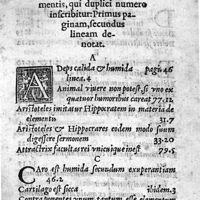 mentis, qui duplici numero
inscribitur: Primus pa-
ginam, secundus
lineam de-
notat.
A
ADeps calida & humida pagi. 46
linea. 4
Animal vivere non potest, si vno ex
quatuor humoribus careat 77.12
Aristoteles imitatur Hippocratem in materia de
elementu 31.7
Aristoteles & Hippocrates eodem modo suum
digessere sermonem 33.20
Attractrix facultas rei vnicuique inest 79.5
C
CAro est humida secundum exuperantiam
Cartilago est sicca ibidem. 3